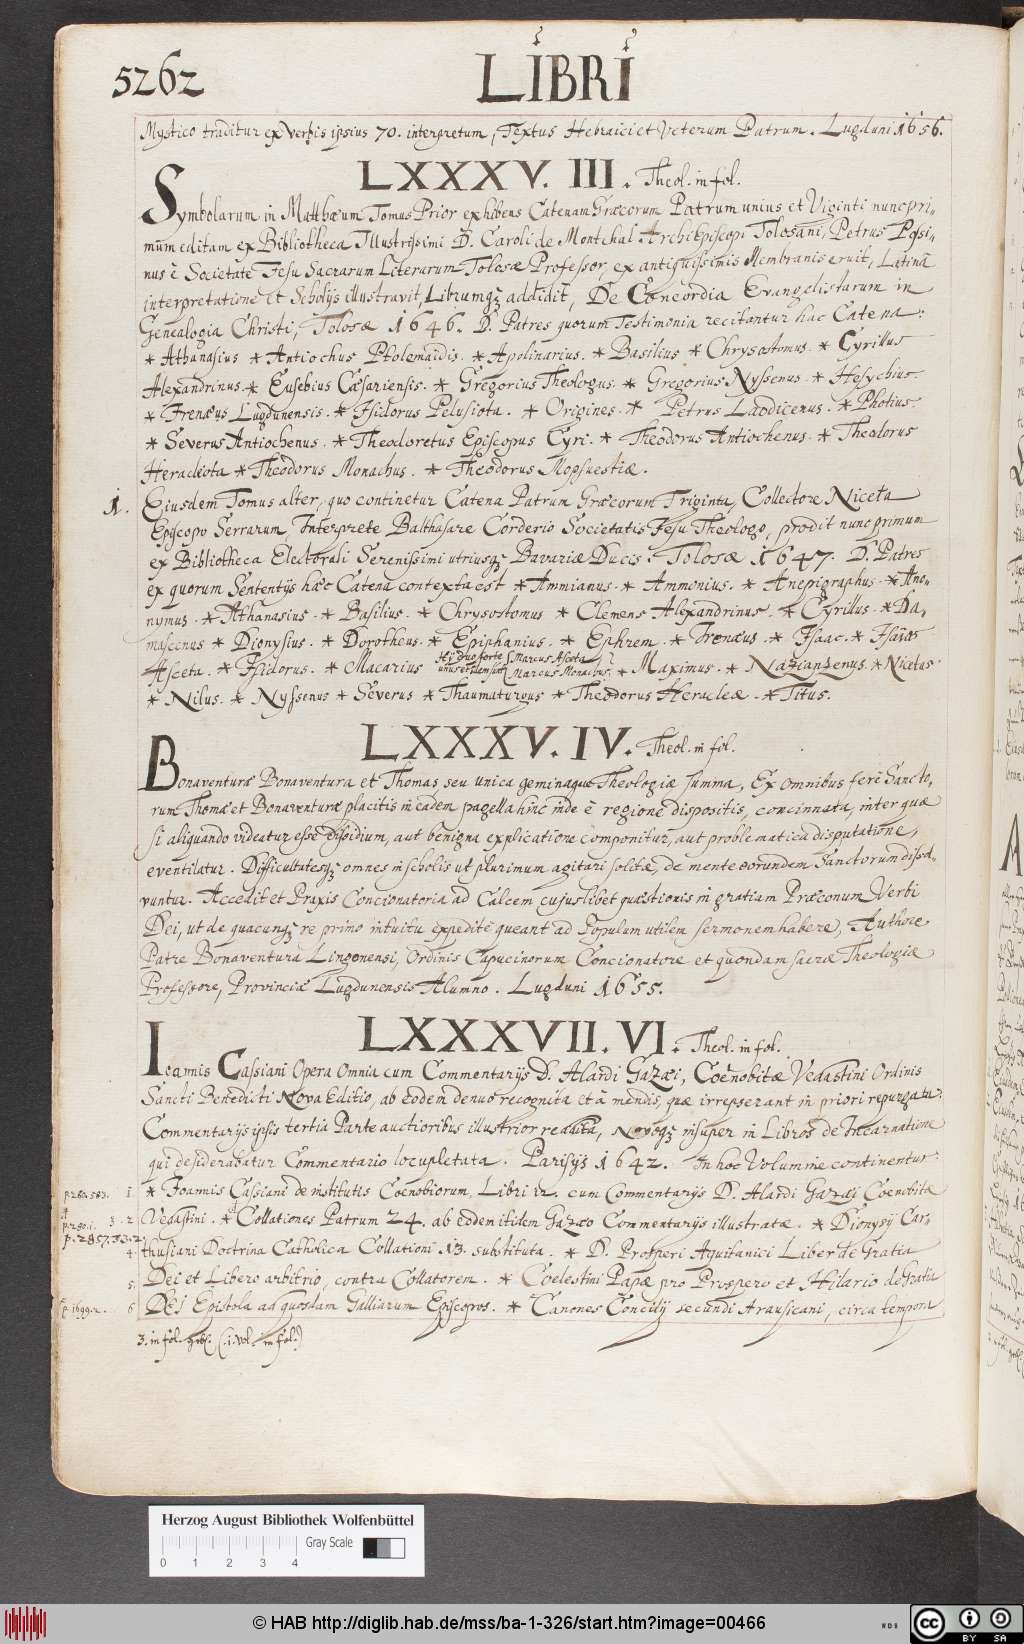 5262
LIBRI
Mystico traditur ex verbis ipsius 70. interpretum, Textus Hebraici et Veterum Patrum. Lugduni 1656.
LXXXV. III. Theol. in fol.
Symbolarum in Matthæum Tomus Prior exhibens Catenam Græcorum Patrum unius et Viginti nunc pri-
mùm editam ex Bibliotheca Illustrissimi D. Caroli de Montchal ArchiEpiscopi Tolosani, Petrus Possi-
nus è Societate Jesu Sacrarum Literarum Tolosæ Professor, ex antiquissimis Membranis eruit, Latinâ
interpretatione et Scholijs illustravit, Librumqz addidit, De Concordia Evangelistarum in
Genealogia Christi, Tolosæ 1646. D. Patres quorum Testimonia recitantur hac Catena:
* Athanasius * Antiochus Ptolemaidis. * Apolinarius. * Basilius * Chrysostomus. * Cyrillus
Alexandrinus. * Eusebius Cæsariensis. * Gregorius Theologus. * Gregorius Nyssenus. * Hesychius
* Irenæus Lugdunensis. * Isidorus Pelusiota. * Origines. * Petrus Laodicenus. * Photius
* Severus Antiochenus. * Theodoretus Episcopus Cyri. * Theodorus Antiochenus. * Theodorus
Heracleota * Theodorus Monachus. * Theodorus Mopsuestiæ.
1. Eiusdem Tomus alter, quo continetur Catena Patrum Græcorum Triginta, Collectore Niceta
Episcopo Serrarum, Interprete Balthasare Corderio Societatis Jesu Theologo, prodit nunc primum
ex Bibliotheca Electorali Serenissimi utriusqz Bavariæ Ducis. Tolosæ 1647. D. Patres
ex quorum Sententijs hæc Catena contexta est * Ammianus. * Ammonius. * Anepigraphus. * Ano-
nymus. * Athanasius. * Basilius. * Chrysostomus * Clemens Alexandrinus. * Cyrillus. * Da-
mascenus * Dionysius. * Dorotheus. * Epiphanius. * Ephrem. * Irenæus. * Isaac. * Isaïas
Asceta. * Isidorus. * Macarius Hi duo forte unus et idem sunt { Marcus Asceta Marcus Monachus. } * Maximus. * Nazianzenus. * Nicetas
* Nilus. * Nyssenus * Severus * Thaumaturgus * Theodorus Heracleæ. * Titus.
LXXXV. IV. Theol. in fol.
Bonaventuræ Bonaventura et Thomas seu unica geminaque Theologiæ summa, Ex omnibus ferè Sancto-
rum Thomæ et Bonaventuræ placitis in eadem pagella hinc inde è regione dispositis, concinnata, inter quæ
si aliquando videatur esse dissidium, aut benigna explicatione componitur, aut problematica disputatione,
eventilatur. Difficultatesqz omnes in scholis ut plurimum agitari solitæ, de mente eorundem Sanctorum dissol-
vuntur. Accedit et Praxis Concionatoria ad Calcem cujuslibet quæstionis in gratiam Præconum Verbi
Dei, ut de quacunqz re primo intuitu expeditè queant ad Populum utilem sermonem habere, Authore
Patre Bonaventura Lingonensi, Ordinis Capucinorum Concionatore et quondam sacræ Theologiæ
Professore, Provinciæ Lugdunensis Alumno. Lugduni 1655.
LXXXVII. VI. Theol. in fol.
Ioannis Cassiani Opera Omnia cum Commentarijs D. Alardi Gazæi, Coënobitæ Vedastini Ordinis
Sancti Benedicti Nova Editio, ab eodem denuo recognita et à mendis, quæ irrepserant in priori repurgata:
Commentarijs ipsis tertia Parte auctioribus illustrior reddita, Novoqz insuper in Libros de Incarnatione
qui desiderabatur Commentario locupletata. Parisijs 1642. In hoc Volumine continentur:
1. * Joannis Cassiani de institutis Coenobiorum Libri 12. cum Commentarijs D. Alardi Gazæi Coenobitæ
3. 2. Vedastini. * Collationes Patrum 24. ab eodem itidem Gazæo Commentarijs illustratæ. * Dionysij Car-
4. thusiani Doctrina Catholica Collationi 13. substituta. * D. Prosperi Aquitanici Liber de Gratia
5. Dei et Libero arbitrio, contra Collatorem. * Coelestini Papæ pro Prospero et Hilario de Gratia
6 DEJ Epistola ad quosdam Galliarum Episcopos. * Canones Concilij secundi Arausicani, circa tempora
3. in fol. gebz (.1. vol. in fol.)
Herzog August Bibliothek Wolfenbüttel
Gray Scale
0 1 2 3 4
© HAB http://diglib.hab.de/mss/ba-1-326/start.htm?image=00466
WDB
cc BY SA